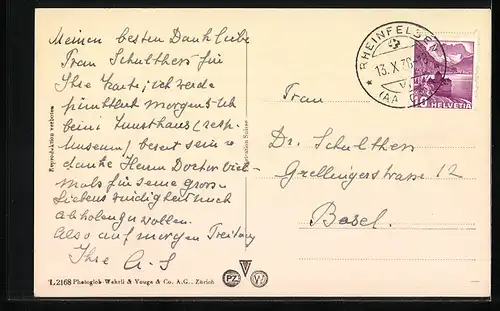 Meinen besten Dank liebe
Frau Schulthess für
Ihre Karte; ich werde
pünktlich morgens
beim Kunsthaus (resp.
Museum) bereit sein
danke Herrn Doctor viel-
mals für seine gross
Liebenswürdigkeit mich
abholen zu wollen.
Also auf morgen Freitag
Ihre A. S
Reproduktion verboten
RHEINFELDEN
13. X. 38
(AA
HELVETIA
Frau
Dr. Schulthess
Grellingerstrasse 12
Basel.
L 2168 Photoglob-Wehrli & Vouga & Co. A.G., Zürich
PZ